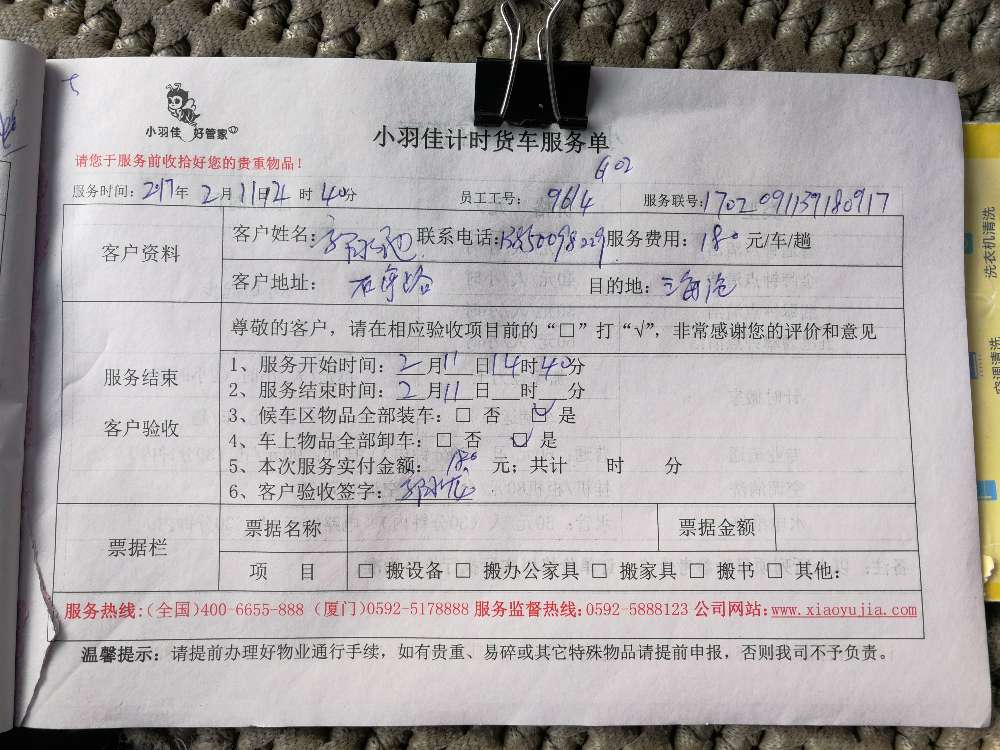 小羽佳 好管家
小羽佳计时货车服务单
请您于服务前收拾好您的贵重物品！
服务时间：2017年 2月11日 时40分 员工工号：9614 服务联号：170209113918091 7
客户资料
客户姓名： 联系电话： 服务费用：180元/车/趟
客户地址： 目的地：
服务结束
客户验收
尊敬的客户，请在相应验收项目前的“□”打“√”，非常感谢您的评价和意见
1、服务开始时间：2月11日14时40分
2、服务结束时间：2月11日 时 分
3、候车区物品全部装车：□ 否 ☑ 是
4、车上物品全部卸车：□ 否 ☑ 是
5、本次服务实付金额：180元；共计 时 分
6、客户验收签字：
票据栏
票据名称 票据金额
项 目 □ 搬设备 □ 搬办公家具 □ 搬家具 □ 搬书 □ 其他：
服务热线：（全国）400-6655-888（厦门）0592-5178888 服务监督热线：0592-5888123 公司网站：www.xiaoyujia.com
温馨提示：请提前办理好物业通行手续，如有贵重、易碎或其它特殊物品请提前申报，否则我司不予负责。
洗衣机清洗
空调清洗